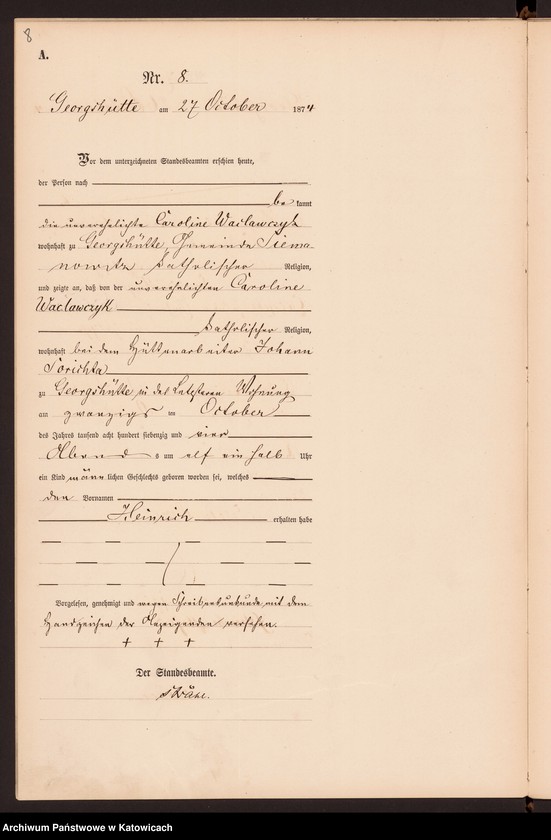 8
A.
Nr. 8.
Georgshütte am 27 October 1874
Vor dem unterzeichneten Standesbeamten erschien heute,
der Person nach
be kannt
die unverehelichte Caroline Waclawczyk
wohnhaft zu Georgshütte, Gemeinde Siema-
nowitz katholischer Religion,
und zeigte an, daß von der unverehelichten Caroline
Waclawczyk
katholischer Religion,
wohnhaft bei dem Hüttenarbeiter Johann
Sorichta
zu Georgshütte in des Letzteren Wohnung
am zwanzigs ten October
des Jahres tausend acht hundert siebenzig und vier
Abends um elf ein halb Uhr
ein Kind männ lichen Geschlechts geboren worden sei, welches
den Vornamen
Heinrich erhalten habe
Vorgelesen, genehmigt und wegen Schreibensunkunde mit dem
Handzeichen der Anzeigenden versehen.
+ + +
Der Standesbeamte.
Archiwum Państwowe w Katowicach